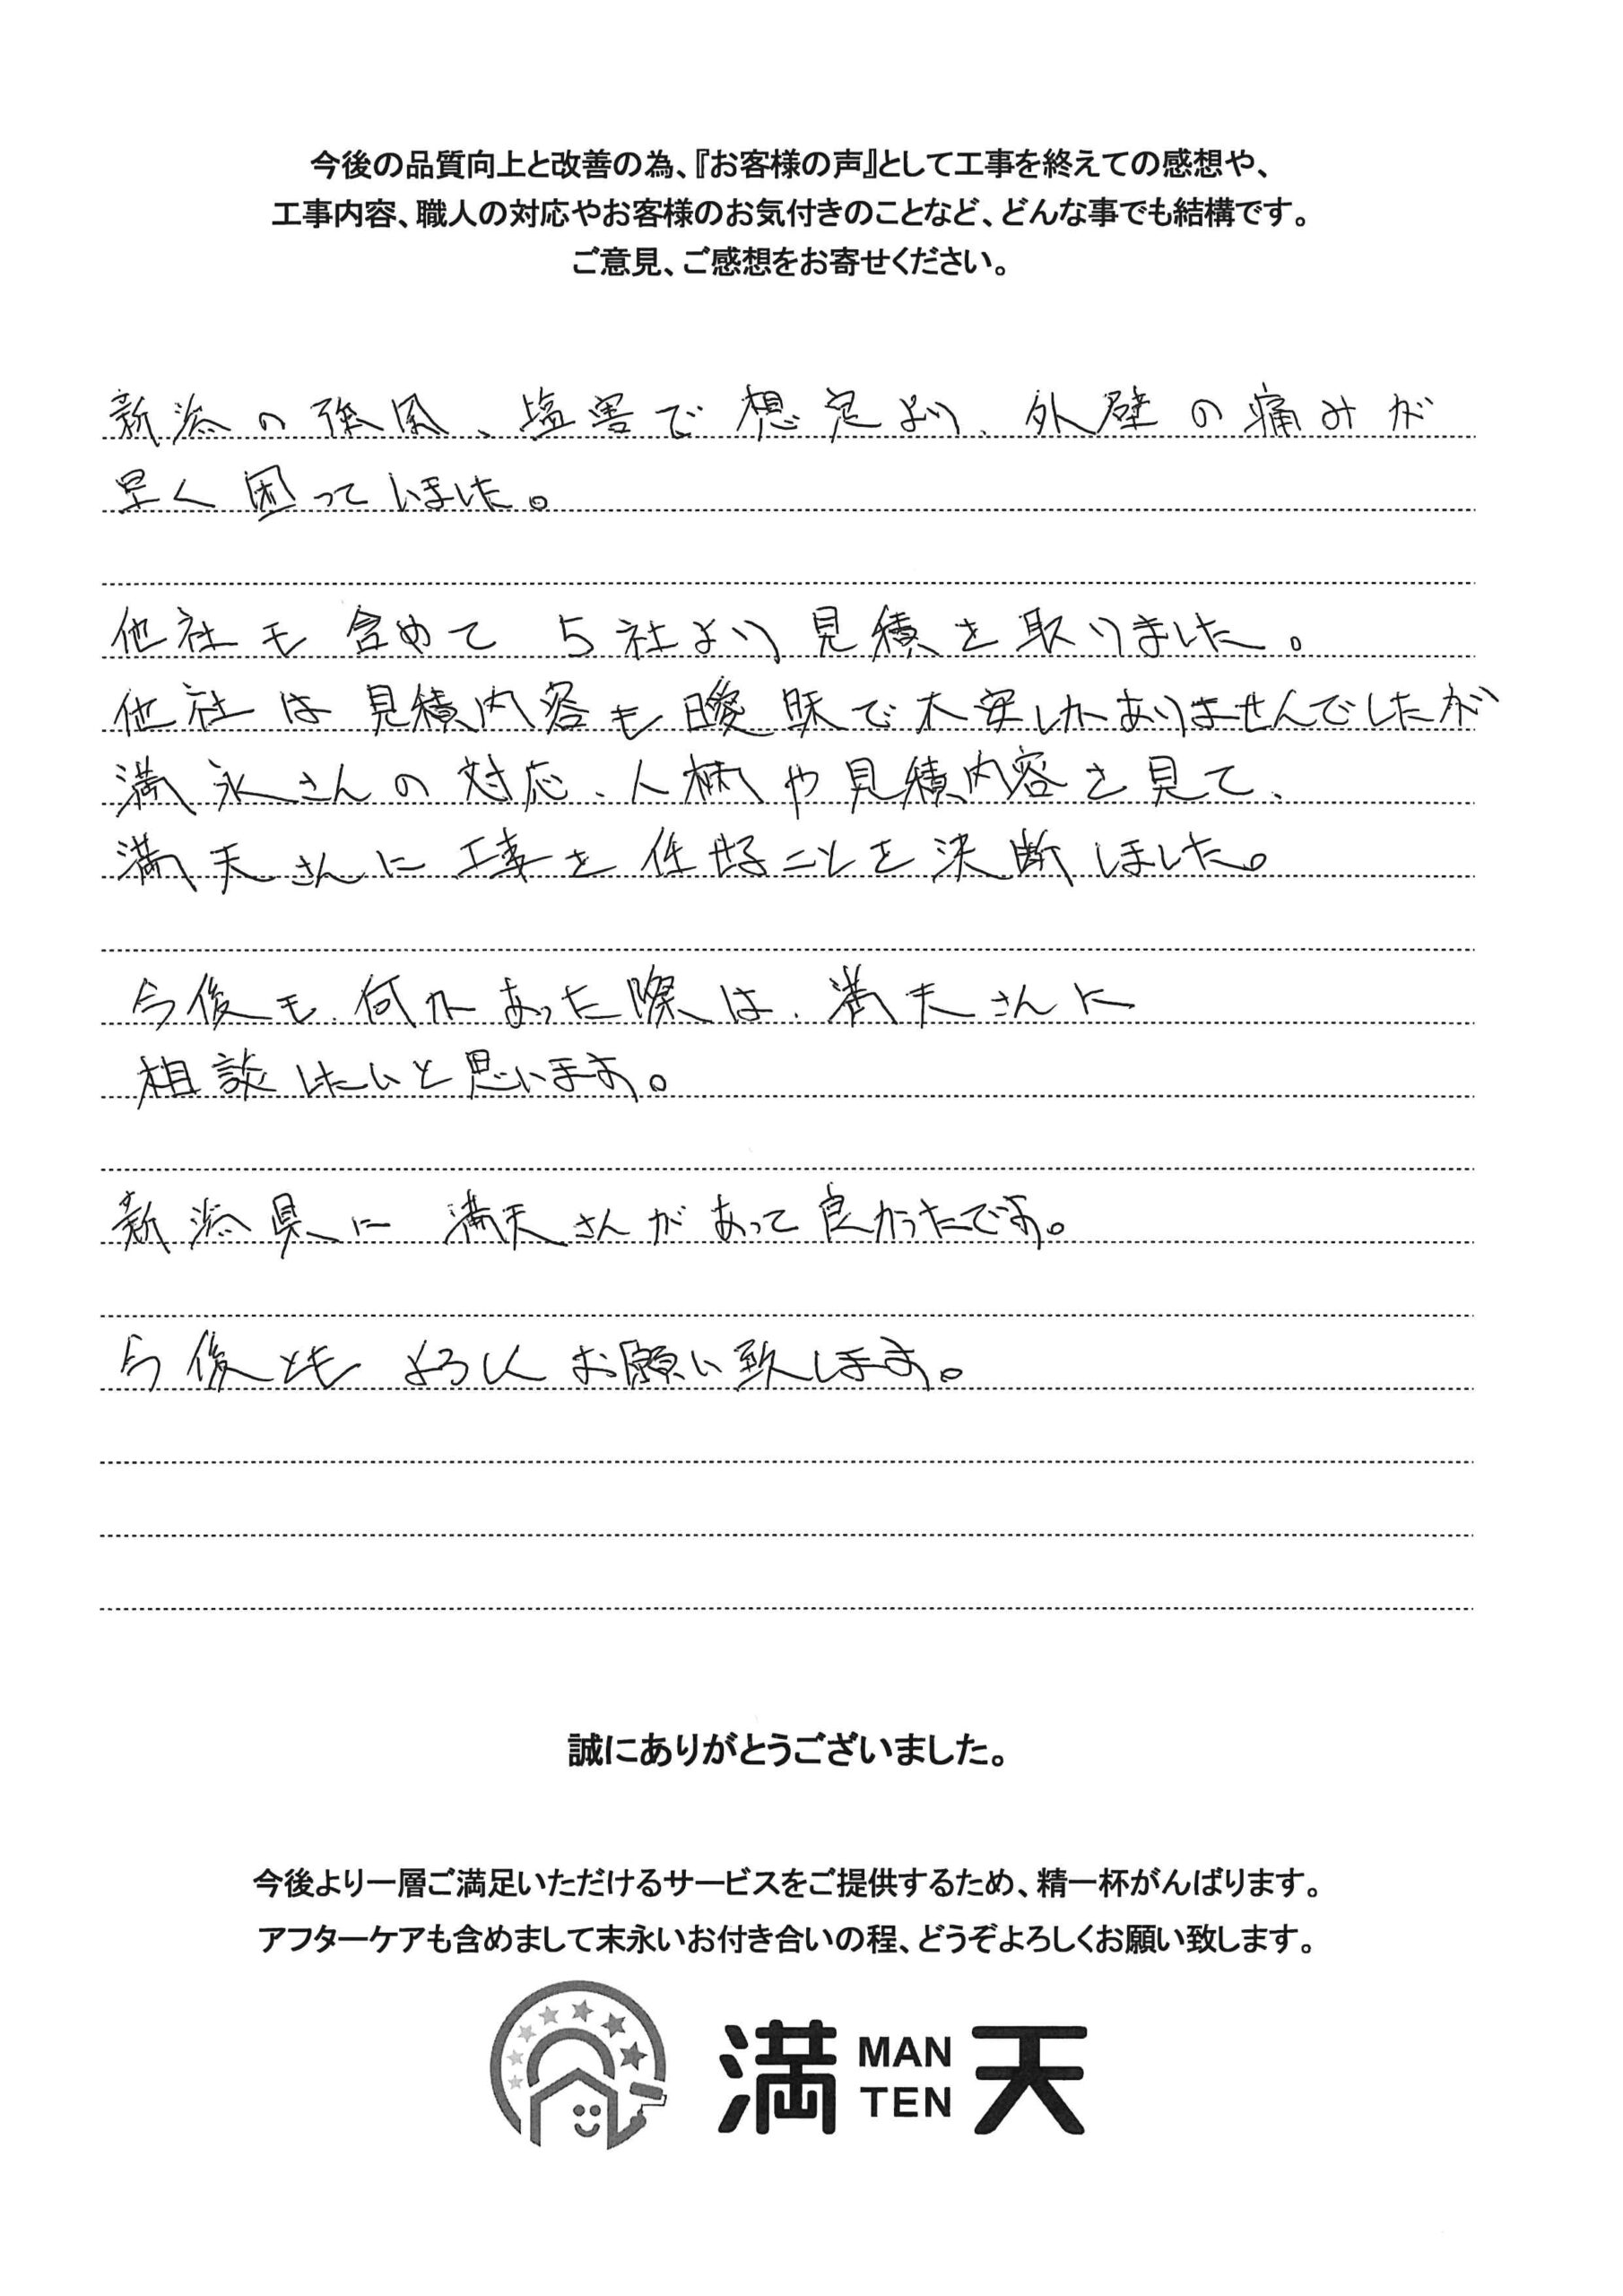 今後の品質向上と改善の為、『お客様の声』として工事を終えての感想や、
工事内容、職人の対応やお客様のお気付きのことなど、どんな事でも結構です。
ご意見、ご感想をお寄せください。
新潟の強風、塩害で想定より、外壁の痛みが
早く困っていました。
他社も含めて5社より見積を取りました。
他社は見積内容も曖昧で不安しかありませんでしたが
満永さんの対応、人柄や見積内容を見て、
満天さんに工事を任せることを決断しました。
今後も、何かあった際は、満天さんに
相談したいと思います。
新潟県に満天さんがあって良かったです。
今後ともよろしくお願い致します。
誠にありがとうございました。
今後より一層ご満足いただけるサービスをご提供するため、精一杯がんばります。
アフターケアも含めまして末永いお付き合いの程、どうぞよろしくお願い致します。
満 MAN TEN 天